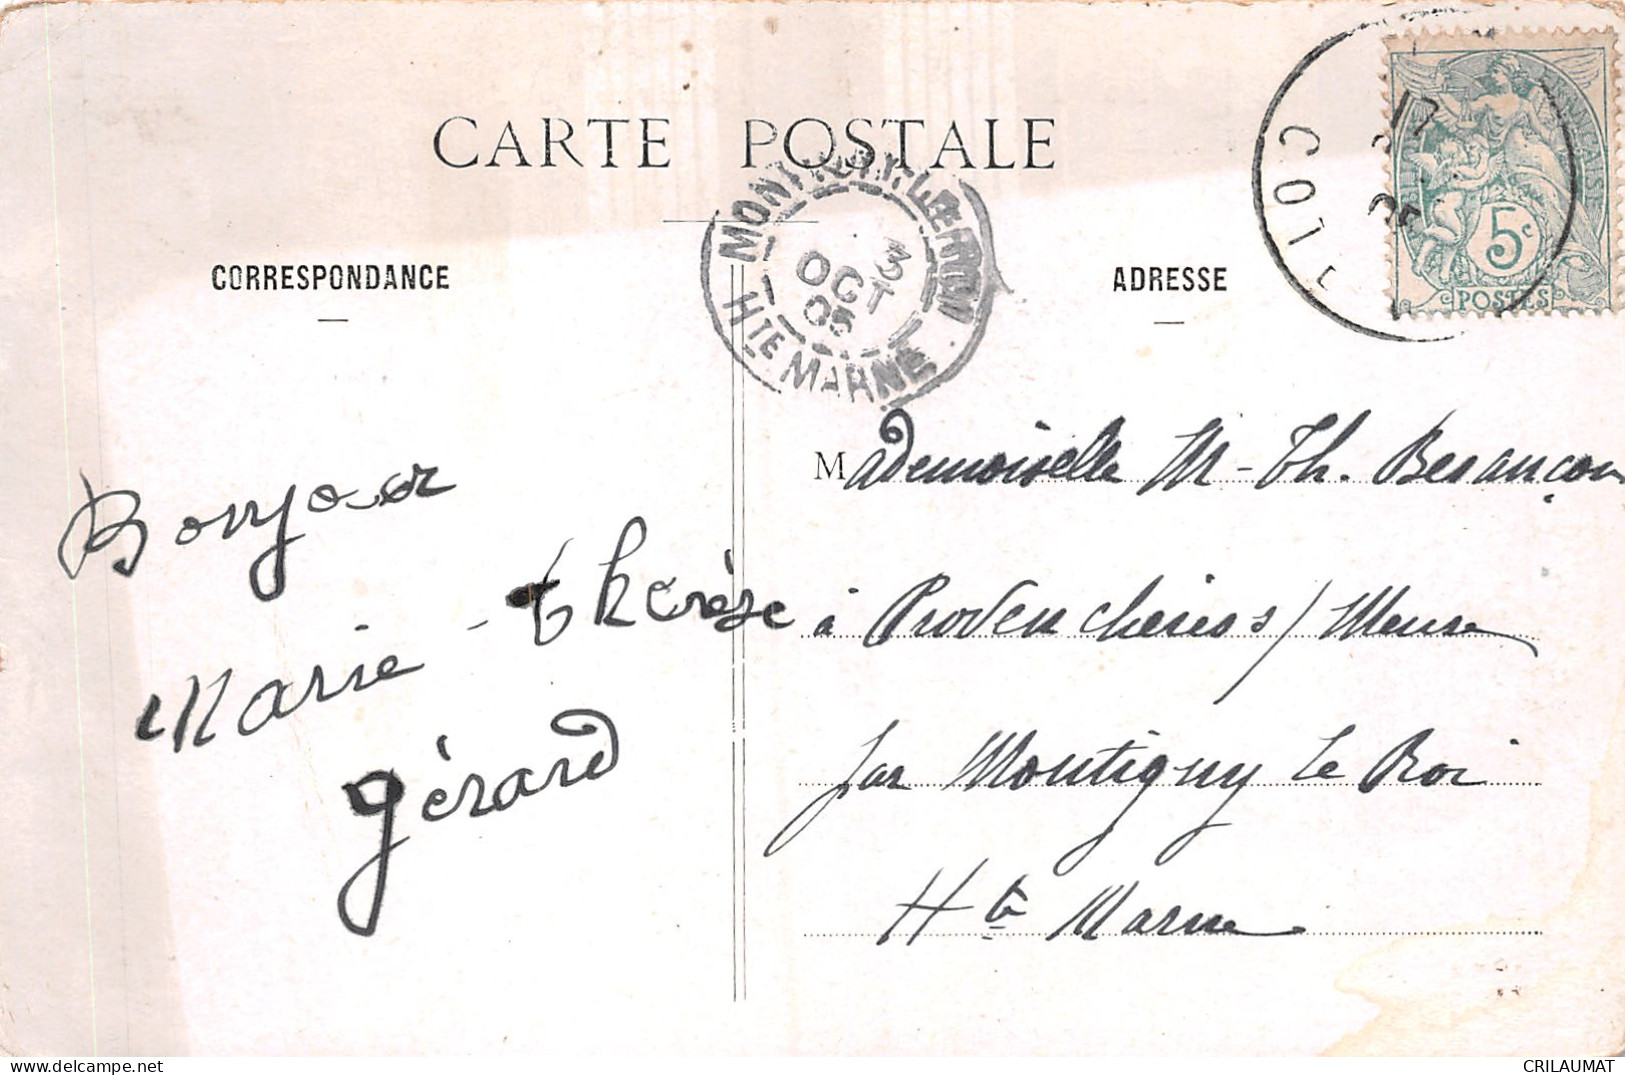 CARTE POSTALE
CORRESPONDANCE
ADRESSE
3
OCT
05
HTE MARNE
17
05
COL
FRANÇAISE
5c
POSTES
Bonjour
Marie-thérèse
gérard
Mademoiselle M-Th. Besançon
à Provenchères s/ Meuse
par Montigny Le Roi
Hte Marne
CRILAUMAT